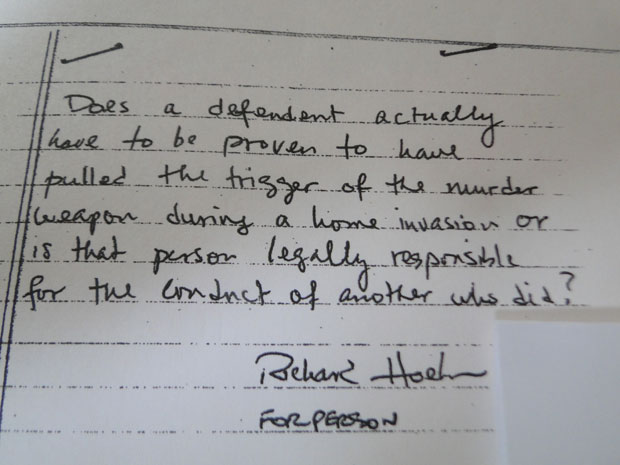 Does a defendent actually
have to be proven to have
pulled the trigger of the murder
weapon during a home invasion or
is that person legally responsible
for the conduct of another who did?
Richard
FORPERSON